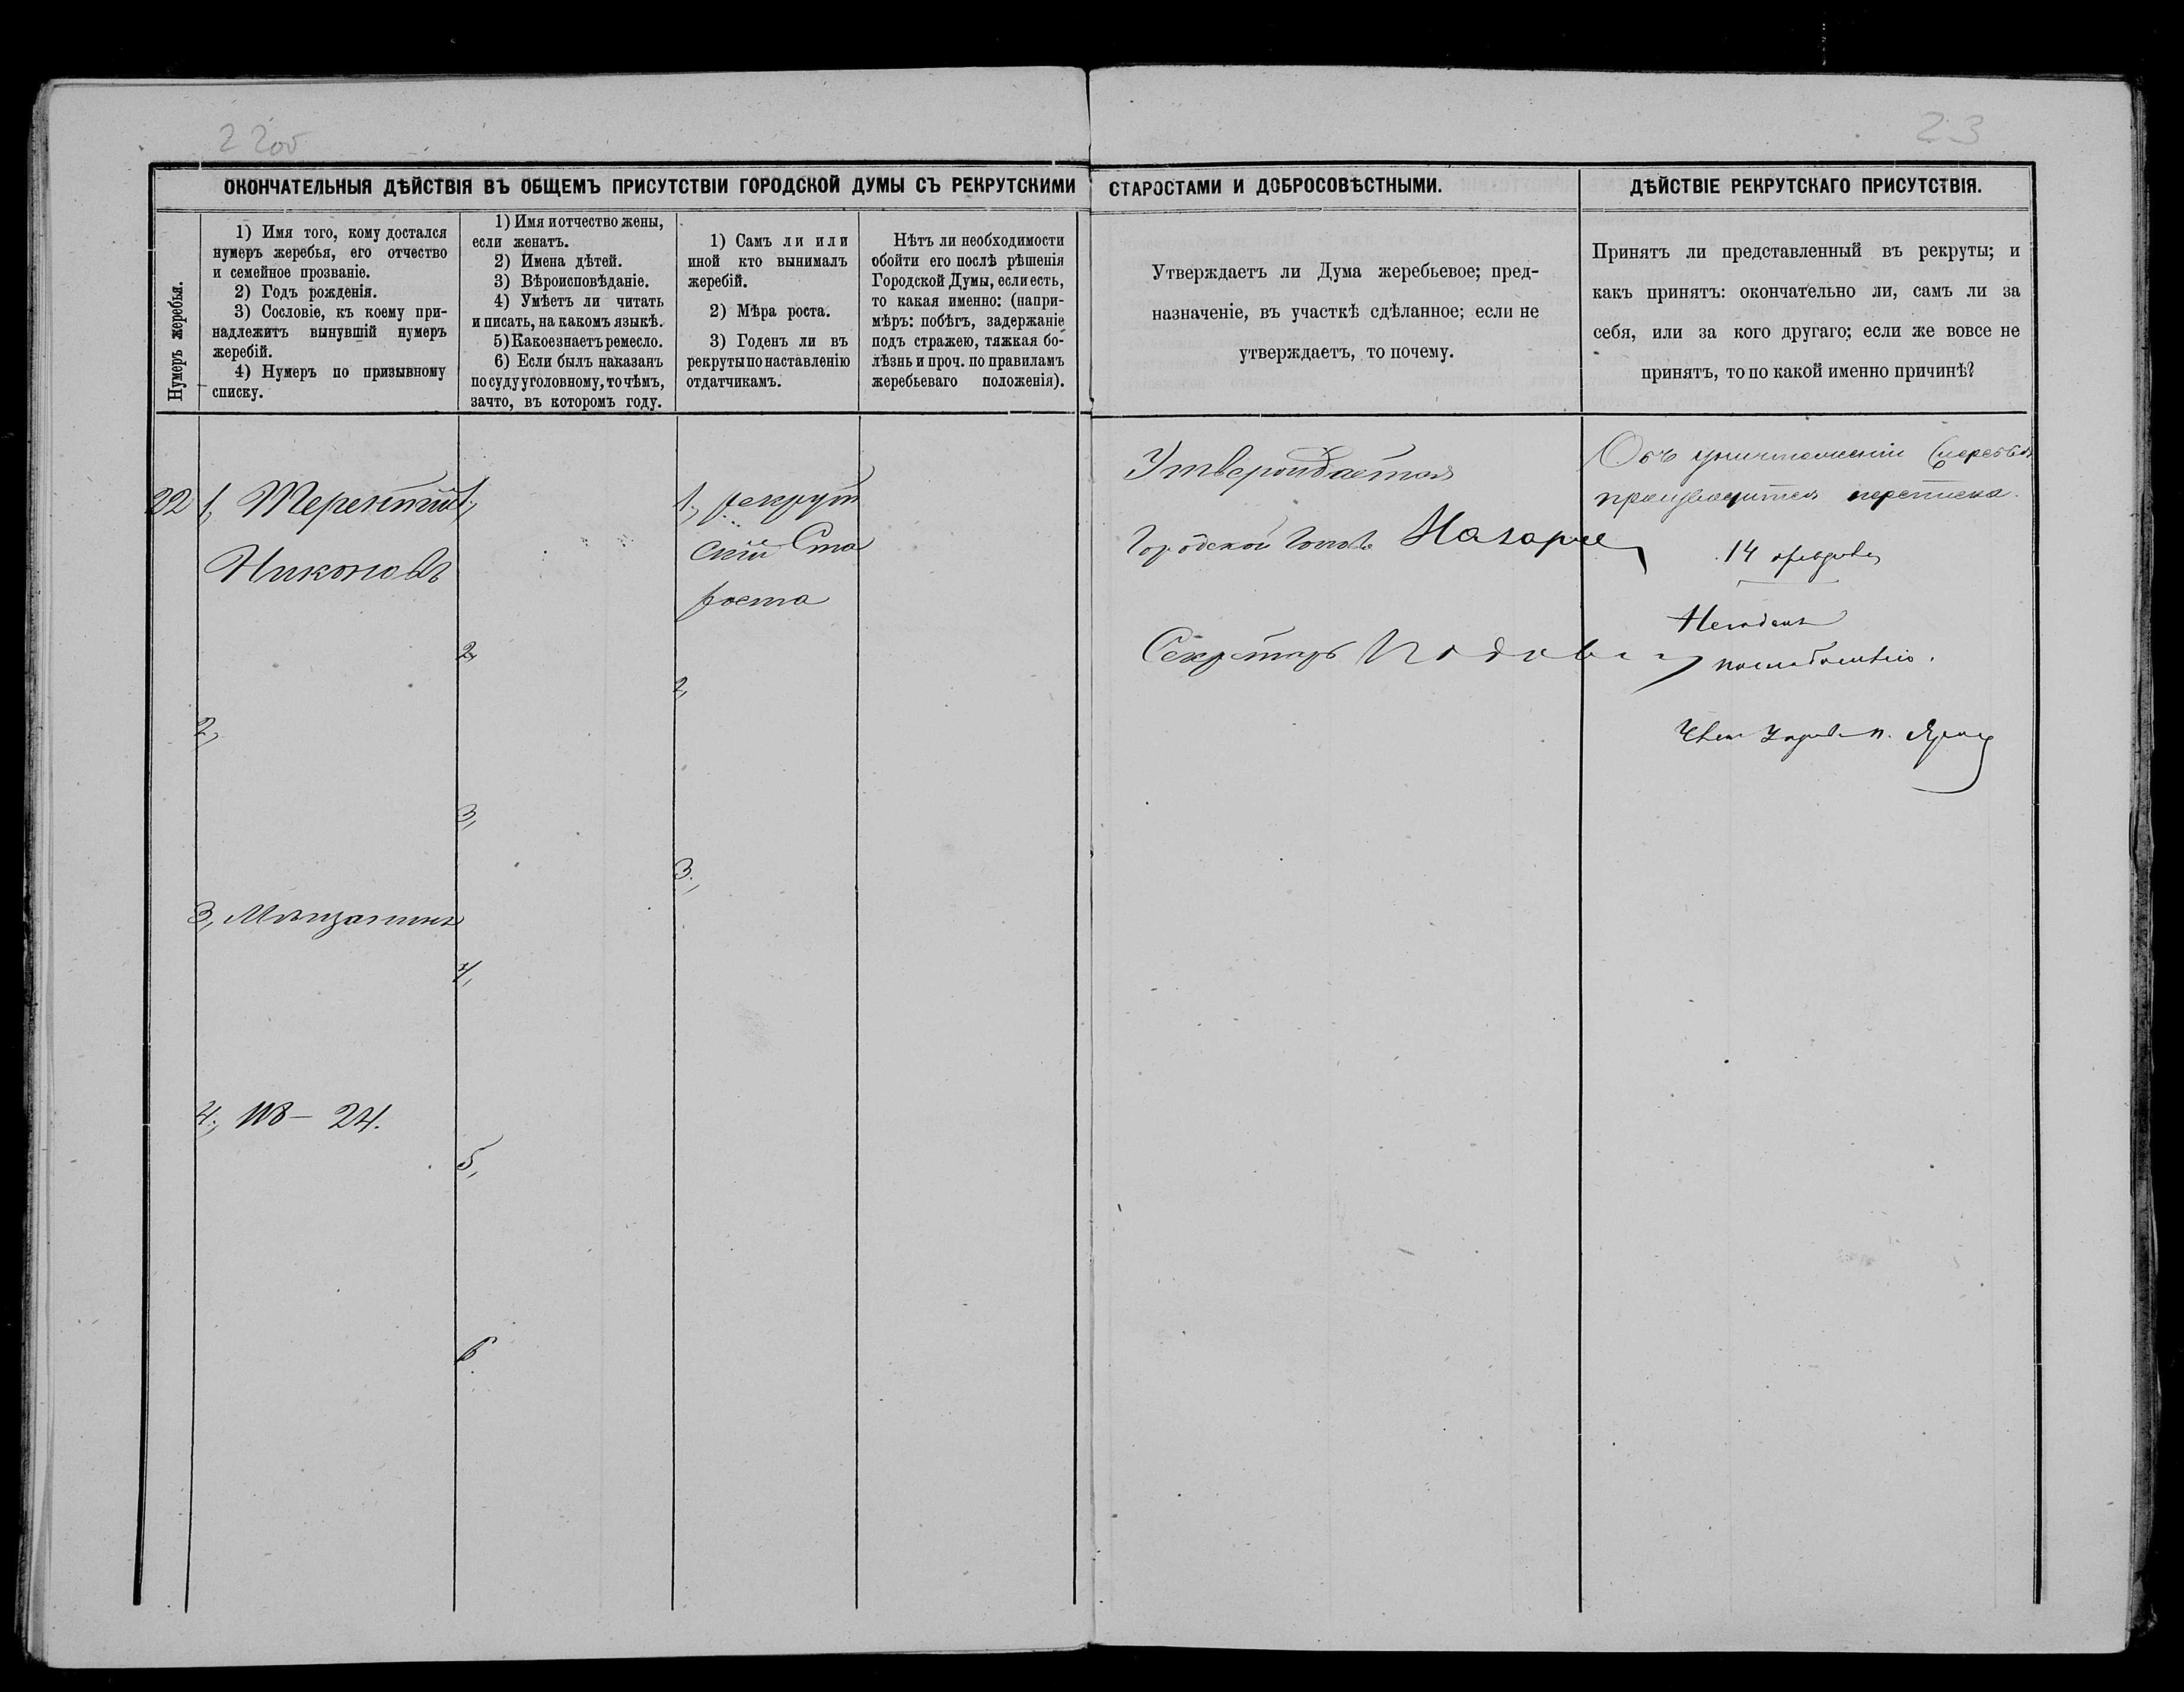 2 2об
23
ОКОНЧАТЕЛЬНЫЯ ДѢЙСТВІЯ ВЪ ОБЩЕМЪ ПРИСУТСТВІИ ГОРОДСКОЙ ДУМЫ СЪ РЕКРУТСКИМИ СТАРОСТАМИ И ДОБРОСОВѢСТНЫМИ.
ДѢЙСТВІЕ РЕКРУТСКАГО ПРИСУТСТВІЯ.
Нумеръ жеребья.
1) Имя того, кому достался
нумеръ жеребья, его отчество
и семейное прозваніе.
2) Годъ рожденія.
3) Сословіе, къ коему при-
надлежитъ вынувшій нумеръ
жеребій.
4) Нумеръ по призывному
списку.
1) Имя и отчество жены,
если женатъ.
2) Имена дѣтей.
3) Вѣроисповѣданіе.
4) Умѣетъ ли читать
и писать, на какомъ языкѣ.
5) Какое знаетъ ремесло.
6) Если былъ наказанъ
по суду уголовному, то чѣмъ,
за что, въ которомъ году.
1) Самъ ли или
иной кто вынималъ
жеребій.
2) Мѣра роста.
3) Годенъ ли въ
рекруты по наставленію
отдатчикамъ.
Нѣтъ ли необходимости
обойти его послѣ рѣшенія
Городской Думы, если есть,
то какая именно: (напри-
мѣръ: побѣгъ, задержаніе
подъ стражею, тяжкая бо-
лѣзнь и проч. по правиламъ
жеребьеваго положенія).
Утверждаетъ ли Дума жеребьевое; пред-
назначеніе, въ участкѣ сдѣланное; если не
утверждаетъ, то почему.
Принятъ ли представленный въ рекруты; и
какъ принятъ: окончательно ли, самъ ли за
себя, или за кого другаго; если же вовсе не
принятъ, то по какой именно причинѣ?
22
1, Терентій
Никоновъ
2,
3, Мѣщанинъ
4, 118 – 24.
1,
2,
3,
4,
5,
6
1, рекрут
скій Ста
роста
2,
3,
Утверждается
Городской Голова
Секретарь
Объ уничтоженіи жеребья
производится переписка.
14
Негоденъ